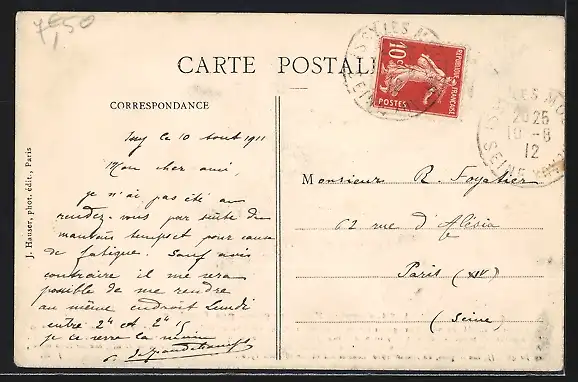 7,50
CARTE POSTALE
RÉPUBLIQUE FRANÇAISE
10c
POSTES
CORRESPONDANCE
Issy ce 10 Aout 1911
Mon cher ami,
je n'ai pas été au
rendez-vous par suite du
mauvais temps et pour cause
de fatigue. Sauf avis
contraire il me sera
possible de me rendre
au même endroit Lundi
entre 2h et 2h 1/2
je te serre la main
Monsieur R. Foyatier
62 rue d'Alésia
Paris (XIV)
(Seine)
ISSY-LES-MOU
20 25
10 -8
12
SEINE
J. Hauser, phot. édit., Paris